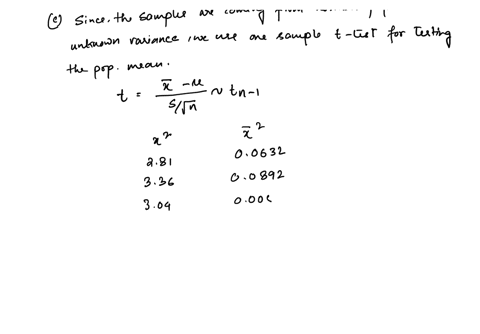 (c) Since, the samples are coming from
unknown variance, we use one sample t-test for testing
the pop. mean.
t = (x̄ - μ) / (s/√n) ~ t n-1
x² x̄²
2.81 0.0632
3.36 0.0892
3.04 0.00